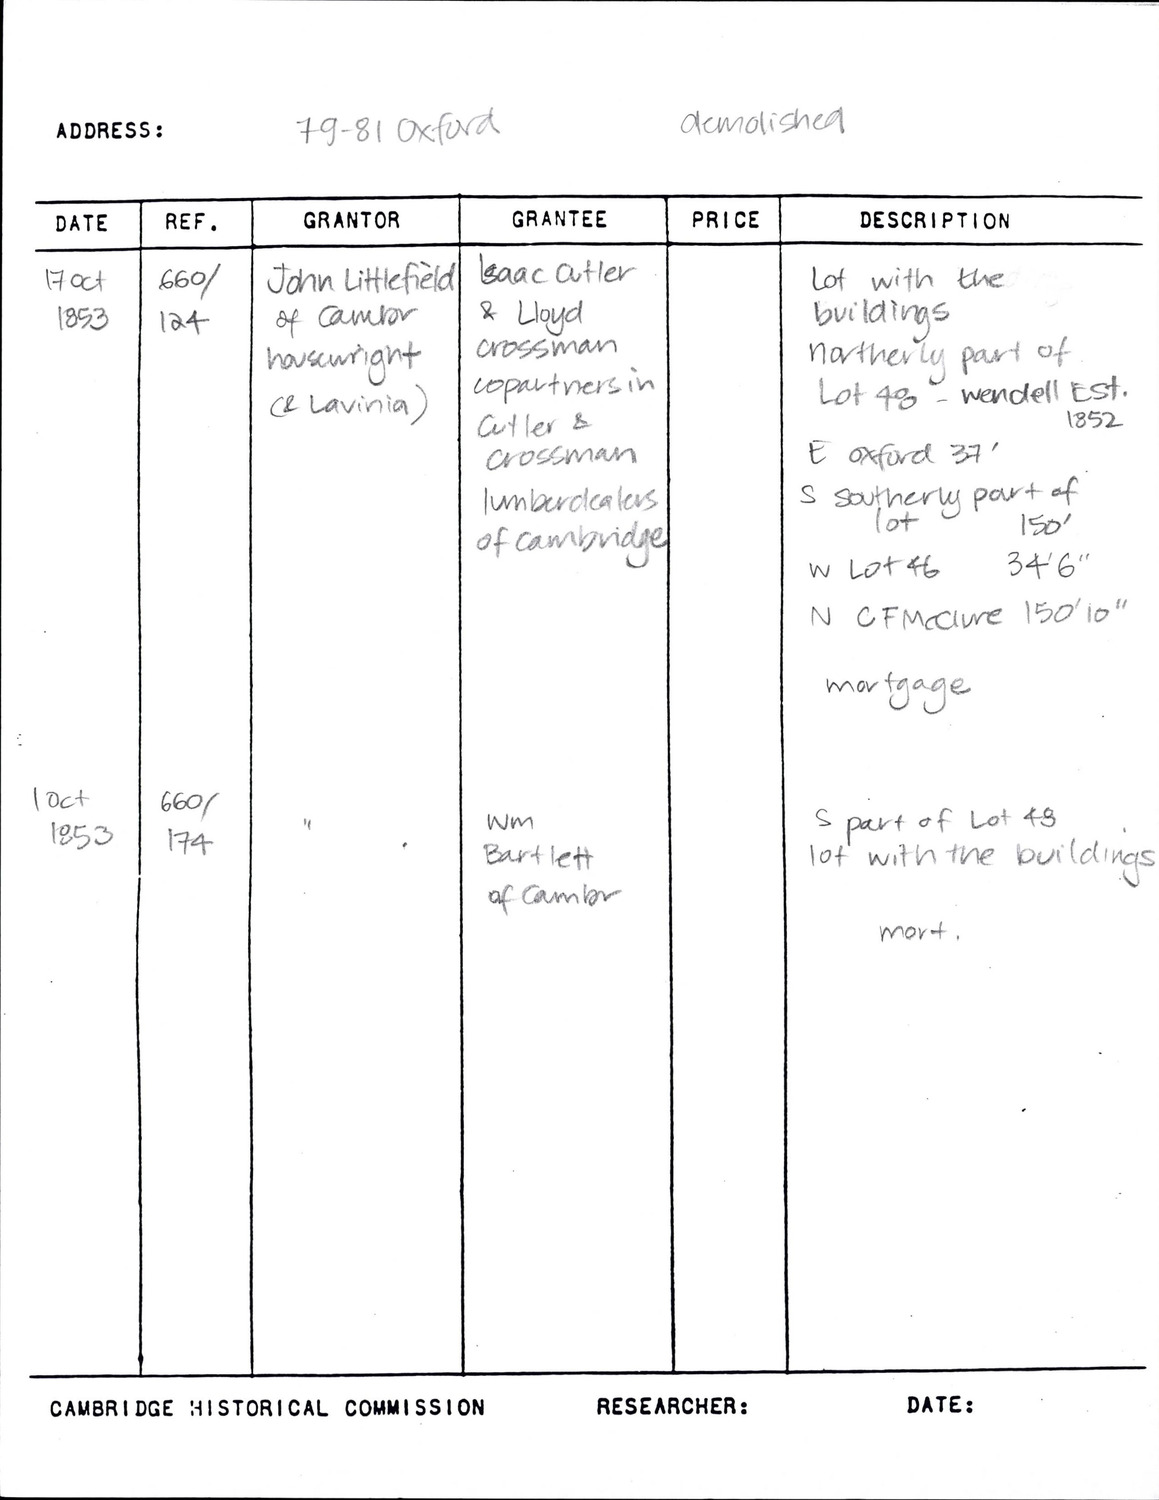 ADDRESS: 79-81 Oxford demolished
DATE REF. GRANTOR GRANTEE PRICE DESCRIPTION
17 Oct
1853
660/
124
John Littlefield
of Cambr
housewright
(& Lavinia)
Isaac Cutler
& Lloyd
Crossman
copartners in
Cutler &
Crossman
lumberdealers
of Cambridge
Lot with the
buildings
northerly part of
Lot 48 - Wendell Est.
1852
E Oxford 37'
S southerly part of
lot 150'
W Lot 46 34'6"
N C F McClure 150'10"
mortgage
1 Oct
1853
660/
174
"
Wm
Bartlett
of Cambr
S part of Lot 48
lot with the buildings
mort.
CAMBRIDGE HISTORICAL COMMISSION RESEARCHER: DATE: